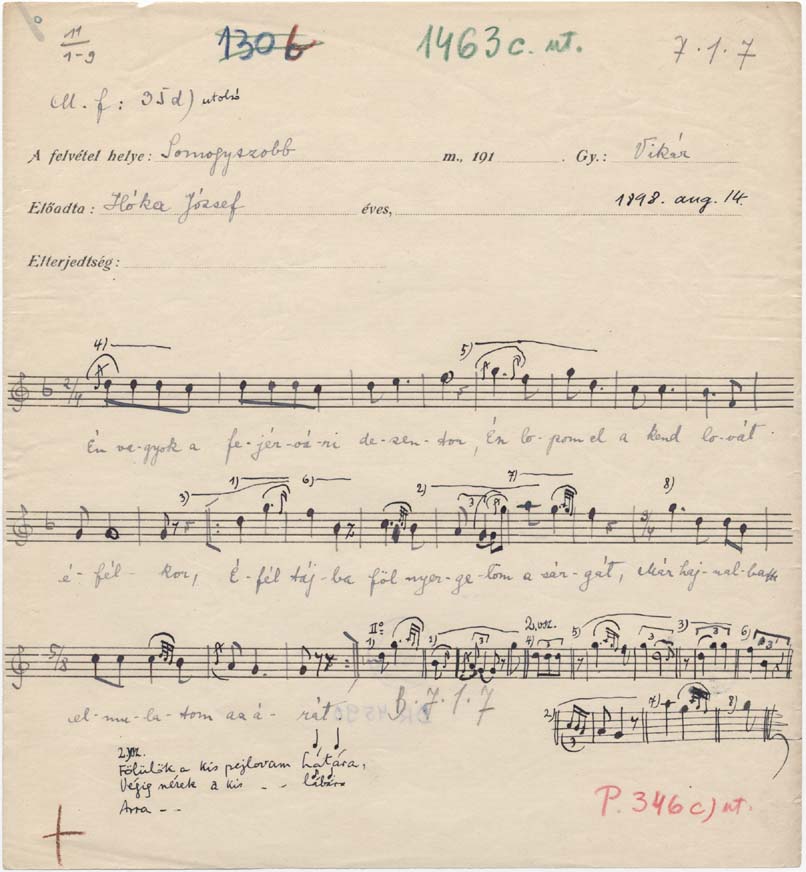 11
1-9
130b
1463c. ut.
7.1.7
M. f: 35d) utolsó
A felvétel helye: Somogyszobb m., 191 . Gy.: Vikár
Előadta: Hóka József éves, 1898. aug. 14.
Elterjedtség:
4) 5)
2/4
Én va-gyok a fe-jér-vá-ri de-sen-tor, Én lo-pom el a kend lo-vát
3) 1) 6) 2) 7) 8)
3/4
é-fél-kor, É-fél táj-ba föl nyer-ge-lom a sár-gát, Már haj-nal-ba
II° 2.vsz.
1) 2) 4) 5) 3) 6)
5/8
el-mu-la-tom az á-rát.
B. 7.1.7
2) 7) 8)
2.vsz.
Fölülök a kis pejlovam hátára,
Végig nérek a kis - - lábára
Arra - -
P. 346c) ut.